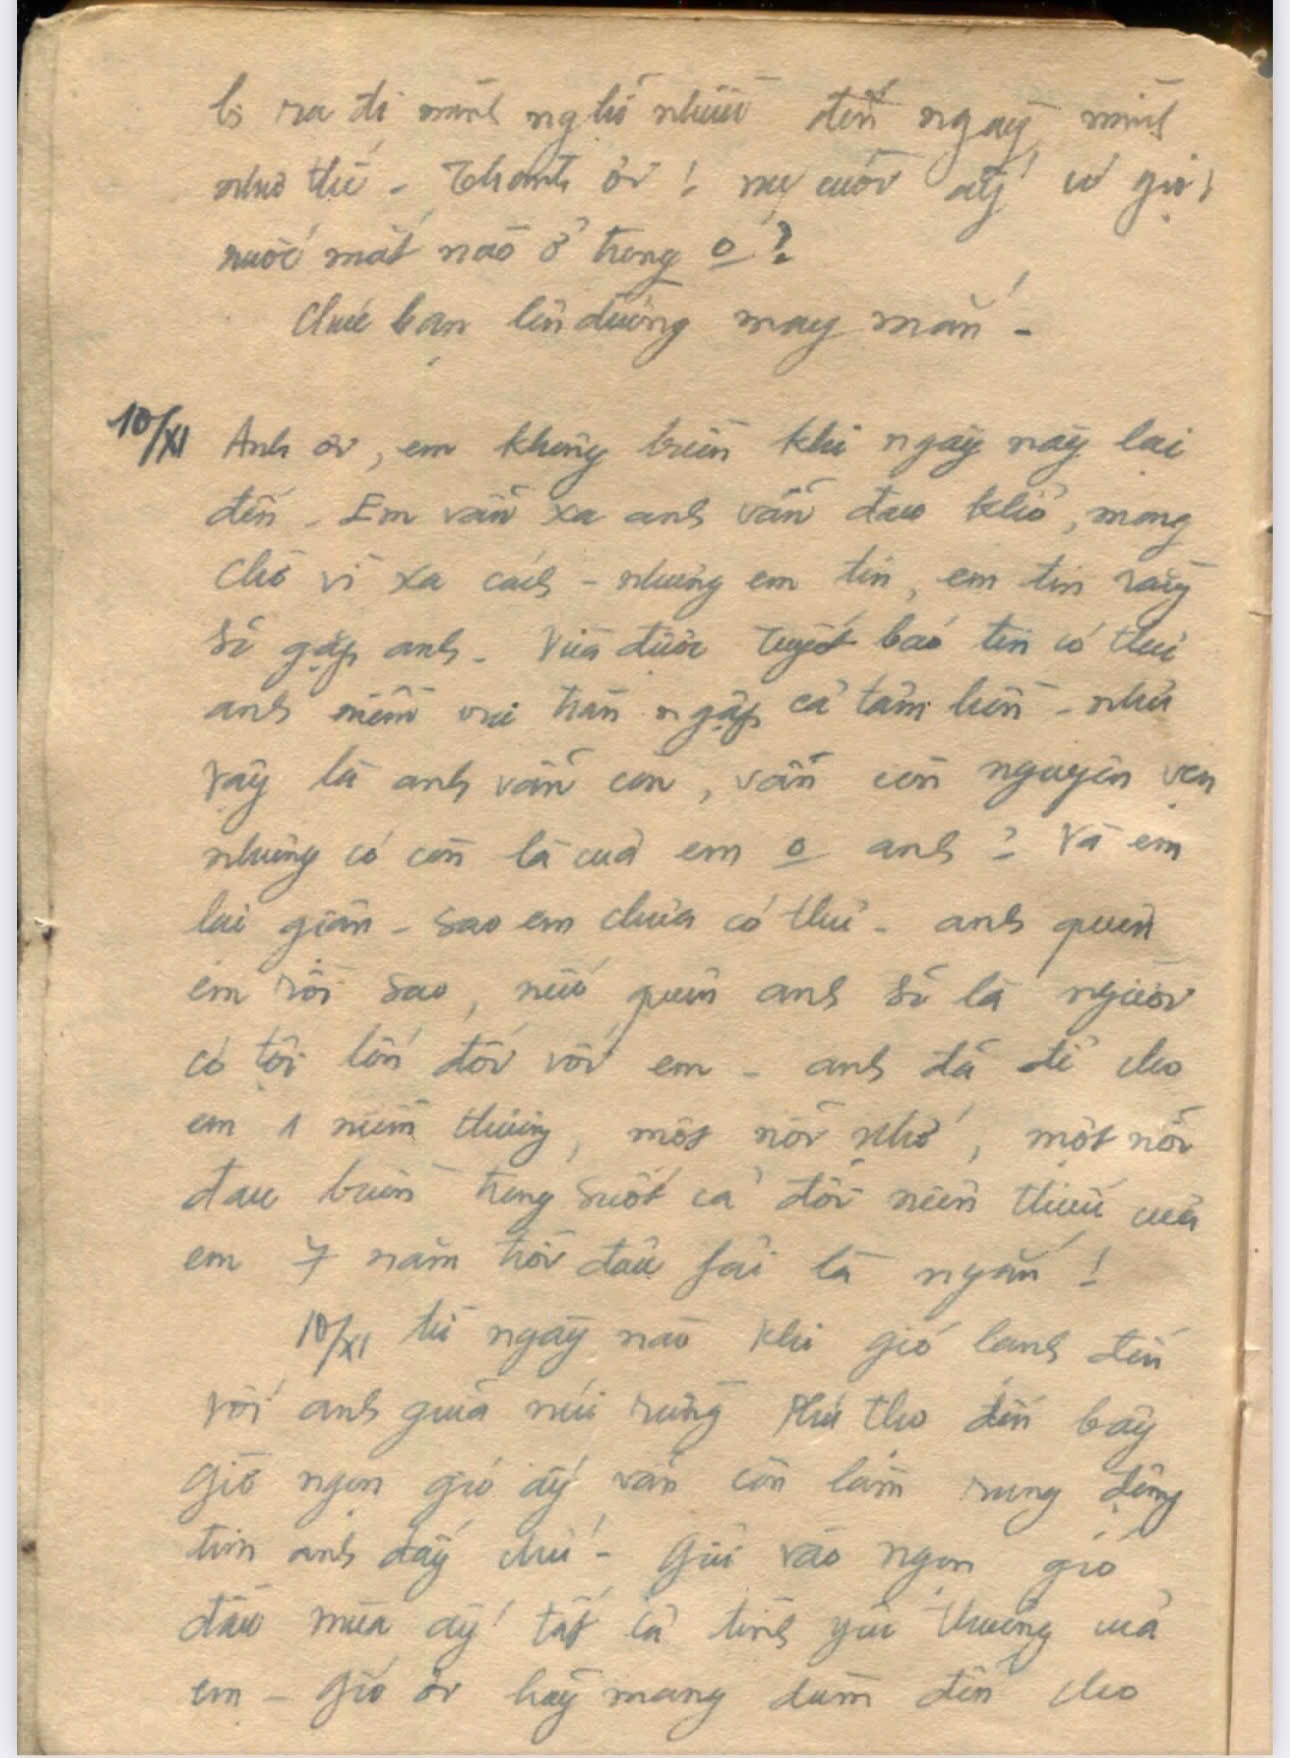 bị ra đi mình nghĩ nhiều đến ngày mình
như thế - Thanh ơi! nụ cười ấy có giọt
nước mắt nào ở trong o?
Chúc bạn lên đường may mắn -
10/XI Anh ơi, em không buồn khi ngày này lại
đến - Em vẫn xa anh vẫn đau khổ, mong
chờ vì xa cách - nhưng em tin, em tin rằng
sẽ gặp anh. Vừa được Tuyết báo tin có thư
anh niềm vui tràn ngập cả tâm hồn - như
vậy là anh vẫn còn, vẫn còn nguyên vẹn
nhưng có còn là của em o anh? Và em
lại giận - Sao em chưa có thư - anh quên
em rồi sao, nếu quên anh sẽ là người
có tội lớn đối với em - anh đã để cho
em 1 niềm thương, một nỗi nhớ, một nỗi
đau buồn trong suốt cả đời niên thiếu của
em 7 năm trời đâu fải là ngắn!
10/XI từ ngày nào khi gió lạnh đến
với anh giữa núi rừng Phú Thọ đến bây
giờ ngọn gió ấy vẫn còn làm rung động
tim anh đấy chứ - Gửi vào ngọn gió
đầu mùa ấy tất cả tình yêu thương của
em - gió ơi hãy mang dùm đến cho